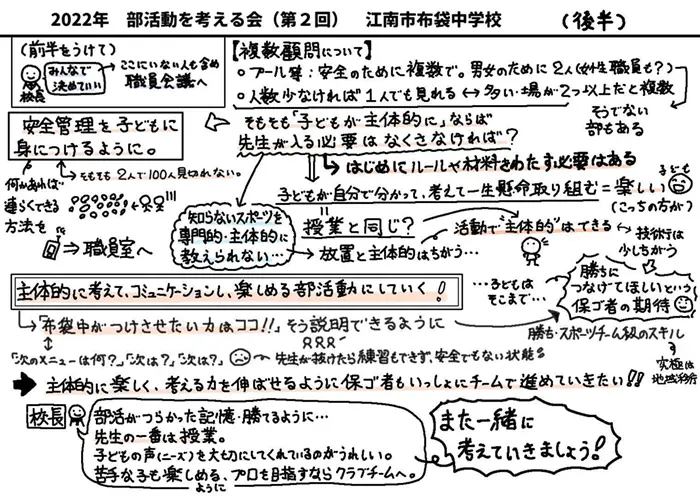 2022年　部活動を考える会（第２回）　江南市布袋中学校　（後半）
（前半をうけて）
校長
みんなで
決めていい
ここにいない人も含め
職員会議へ
【複数顧問について】
○プール等：安全のために複数で。男女のために２人（女性職員も？）
○人数少なければ１人でも見れる↔多い・場が２つ以上だと複数
そうでない
部もある
安全管理を子どもに
身につけるように。
そもそも「子どもが主体的に」ならば
先生が入る必要はなくさなければ？
そもそも２人で100人見切れない。
はじめにルールや材料をわたす必要はある
何かあれば
連らくできる
方法を
職員室へ
子どもが自分で分かって、考えて一生懸命取り組む＝楽しい
子ども
（こっちの方が）
知らないスポーツを
専門的・主体的に
教えられない…
授業と同じ？
放置と主体的はちがう…
活動で“主体的”はできる
技術行は
少しちがう
主体的に考えて、コミュニケーションし、楽しめる部活動にしていく！
…子どもは
そこまで…
勝ちに
つなげてほしいという
保ゴ者の期待
「布袋中がつけさせたい力はココ!!」そう説明できるように
勝ち・スポーツチーム級のスキル
「次のメニューは何？」「次は？」「次は？」
先生が抜けたら練習もできず、安全でもない状態
究極は
主体的に楽しく、考える力を伸ばせるように保ゴ者もいっしょにチームで進めていきたい!!
校長
部活がつらかった記憶・勝てるように…
先生の一番は授業。
子どもの声（ニーズ）を大切にしてくれているのがうれしい。
苦手な子も楽しめる、プロを目指すならクラブチームへ。
ように
また一緒に
考えていきましょう！